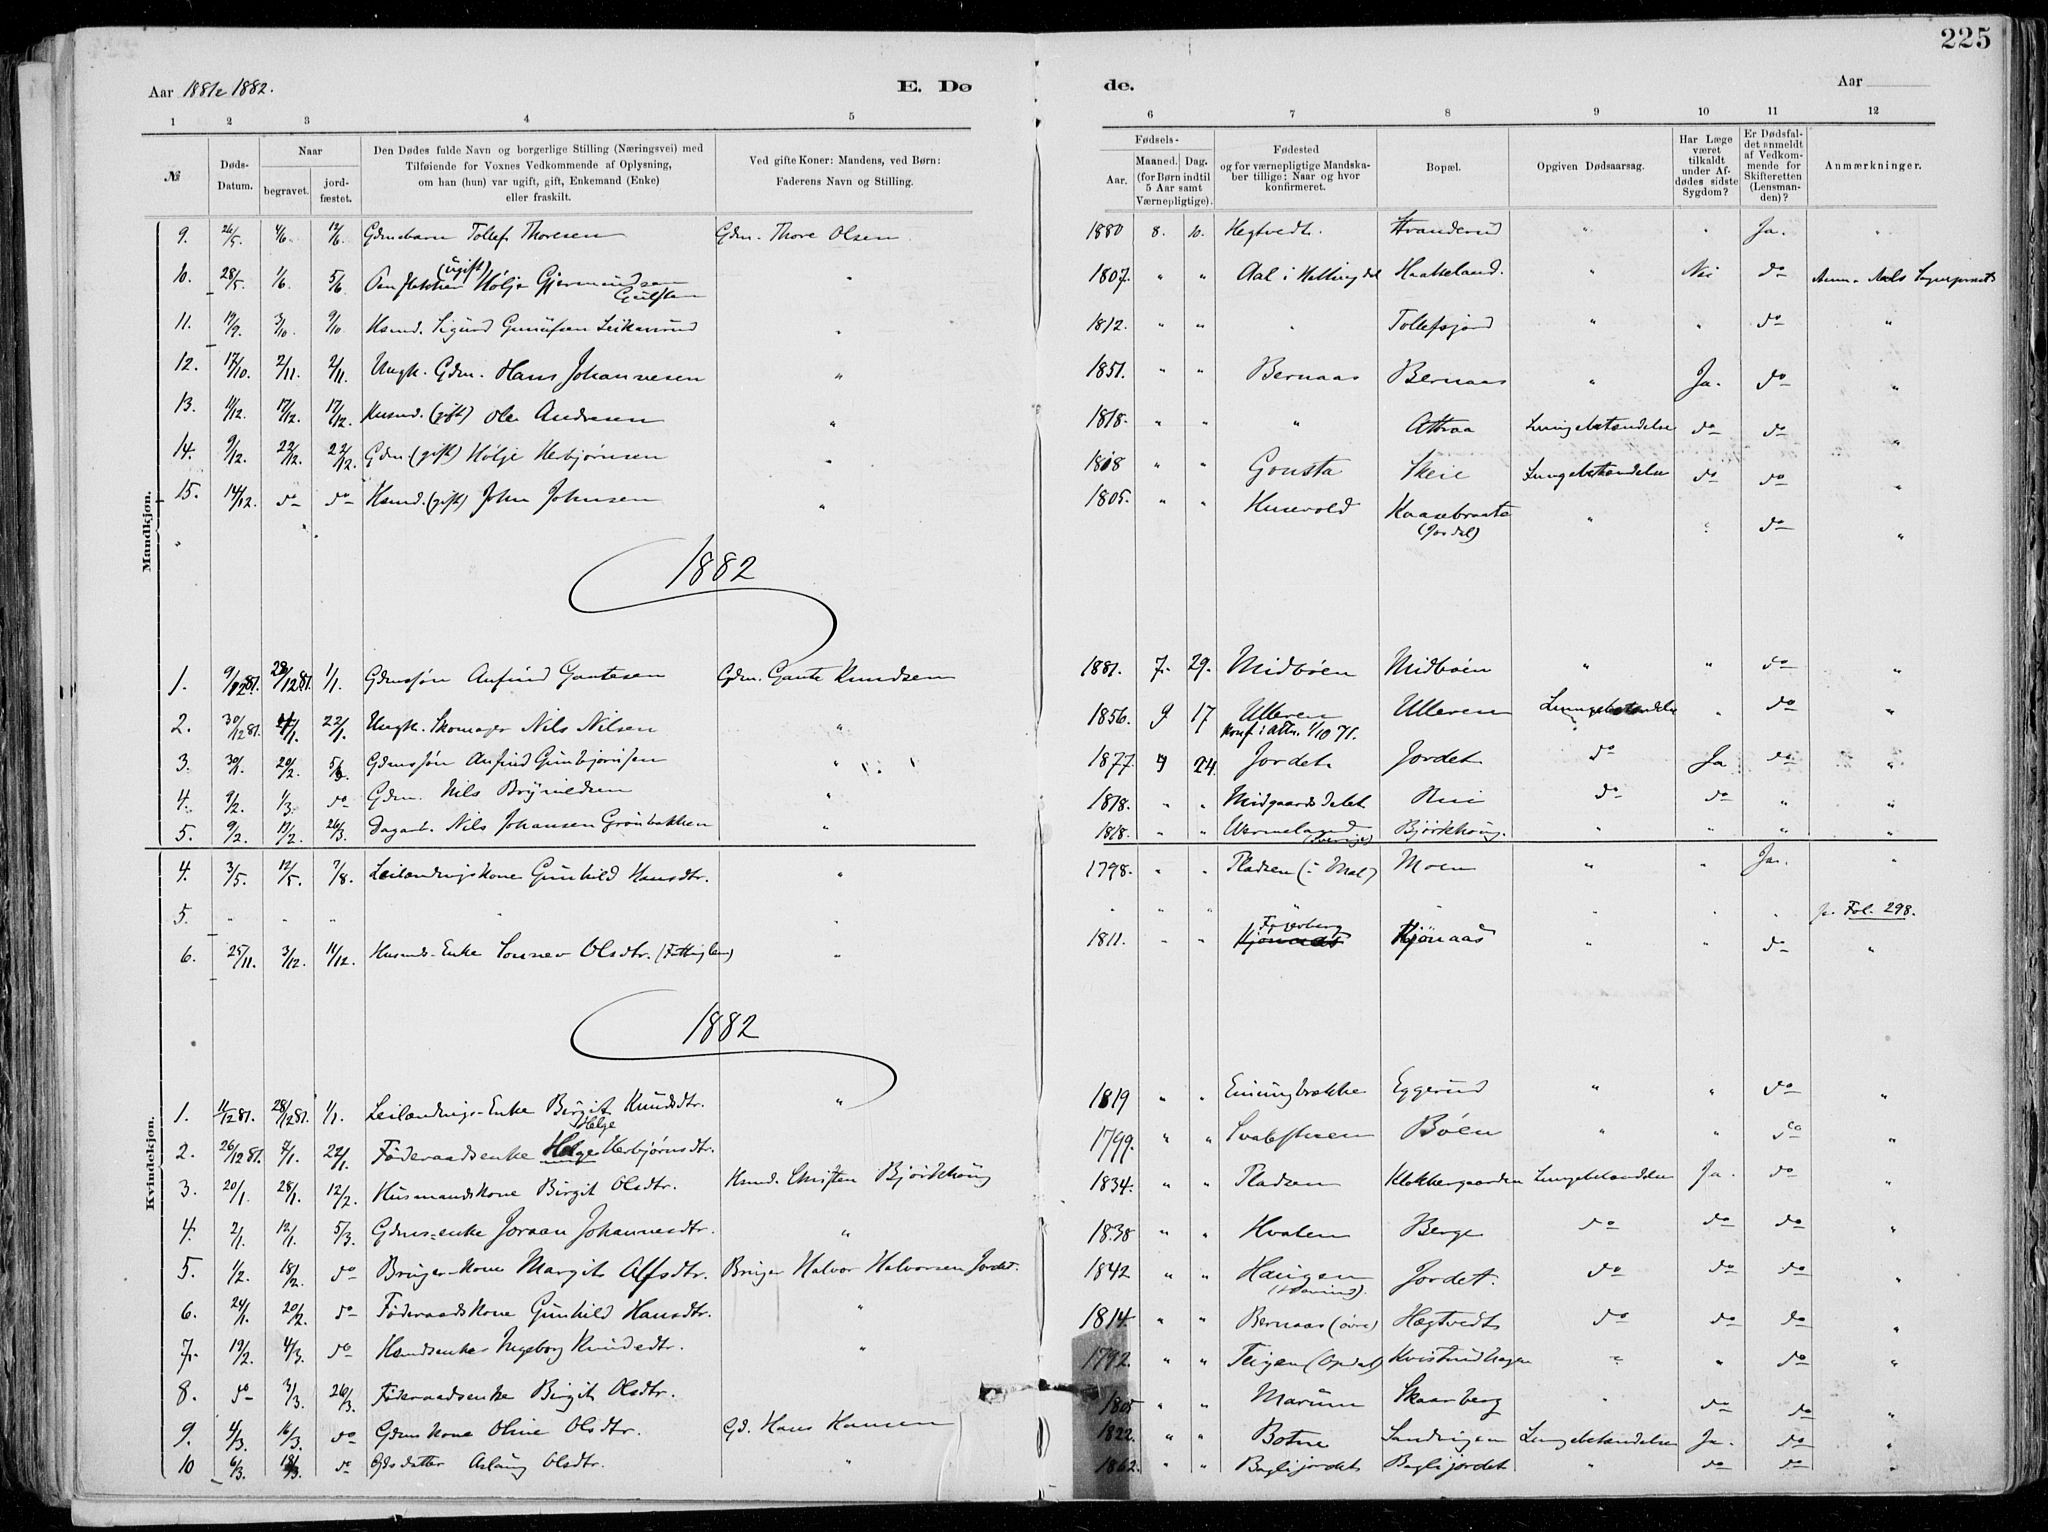 225
Aar 1881 & 1882. E. Dø de. Aar
1 2 3 4 5 6 7 8 9 10 11 12
№
Døds-Datum.
Naar
begravet.
jord-fæstet.
Den Dødes fulde Navn og borgerlige Stilling (Næringsvei) med
Tilføiende for Voxnes Vedkommende af Oplysning,
om han (hun) var ugift, gift, Enkemand (Enke)
eller fraskilt.
Ved gifte Koner: Mandens, ved Børn:
Faderens Navn og Stilling.
Fødsels-
Aar.
Maaned. Dag.
(for Børn indtil
5 Aar samt
Værnepligtige).
Fødested
og for værnepligtige Mandska-
ber tillige: Naar og hvor
konfirmeret.
Bopæl.
Opgiven Dødsaarsag.
Har Læge
været
tilkaldt
under Af-
dødes sidste
Sygdom?
Er Dødsfal-
det anmeldt
af Vedkom-
mende for
Skifteretten
(Lensman-
den)?
Anmærkninger.
Mandkjøn.
9. 26/5. 4/6. 12/6. Gdmsbarn Tollef Thoresen Gdm. Thore Olsen 1880 8. 10. Hegtvedt. Stranderud " " Ja. "
10. 28/5. 1/6. 5/6. (ugift) Høljе Gjermundsen " 1807. " " Aal i Hallingdal Haakeland. " Nei do
11. 19/9. 3/10. 9/10. Hsmd. Sigurd Gunufsen " 1812. " " " Tollefsjord " " do "
12. 17/10. 2/11. 2/11. Ungk. Gdm. Hans Johannesen " 1851. " " Bernaas Bernaas " Ja. do "
13. 11/12. 17/12. 17/12. Husmd. (gift) Ole Andresen " 1818. " " " Attraa Lungebetændelse do do "
14. 9/12. 22/12. 22/12. Gdm. (gift) Hølje Herbjørnsen " 1818 " " Gousta Skeie Lungebetændelse do do "
15. 14/12. do do Hsmd. (gift) John Johnsen " 1805. " " Husevold Kaasebraate (Jordal) " " do "
1882
1. 9/12 81. 28/12 81. 1/1. Gdmssøn Anfind Gautesen Gdm. Gaute Knudsen 1881. 7. 29. Midbøen Midbøen " " do "
2. 30/12 81. 22/1. Ungk. Skomager Nils Nilsen " 1856. 9 17 Ulleren Konf. i Attr. 1/10 71. Ulleren Lungebetændelse " do "
3. 30/1. 20/2. 5/3. Gdmssøn Anfind Gunbjørnsen " 1877. 24. Jordet Jordet do Ja do "
4. 9/2. 1/3. do Gdm. Nils Brynildsen " 1818. " " Midgaardsdalet do do " "
5. 9/2. 19/2. 26/3. Dagarb. Nils Johansen Grønbakken " 1818. " " Wermeland (Sverige) Bjørkhaug. " " " "
Kvindekjøn.
4. 3/5. 12/5. 7/8. Leilændingskone Gunhild Hansdtr. " 1798. " " Pladsen (i Mæl) Moen " " Ja. "
5. " " " " " " " " " " " " " Fol. 298.
6. 25/11. 3/12. 11/12. Husmds. Enke Sonnev Olsdtr. (Fattiglem) " 1811. " " Kjønaas " " do "
1882
1. 11/12 81. 28/12 81. 1/1. Leilændings-Enke Birgit Knudsdtr. " 1819 " " Eggerud " " do "
2. 26/12 81. 7/1. 22/1. Føderaadsenke Helge Helge Herbjørnsdtr. 1799. " " Bøen " " do "
3. 20/1. 28/1. 12/2. Husmandskone Birgit Olsdtr. Hsmd. Christen Bjørkhaug 1834. " " Pladsen Klokkergaarden Lungebetændelse Ja. do "
4. 2/1. 12/1. 5/3. Gdms-enke Joraan Johannesdtr. " 1838 " " Hvalen Berge do do do "
5. 1/2. 18/2. do Bruger-kone Margit Alfsdtr. Bruger Halvor Halvorsen Jordet. 1842 " " Haugen (Hovind). Jordet. do do do "
6. 24/1. 20/2. do Føderaadskone Gunhild Hansdtr. " 1814. " " Bernaas (øvre) Hægtvedt do do do "
7. 19/2. 4/3. do Hsmdsenke Ingeborg Knudsdtr. " 1792. " " Teigen (Opdal) Kvistrudhagen " " do "
8. do 3/3. 26/3. Føderaadsenke Birgit Olsdtr. 1805 " " Marum Skaarberg " do do "
9. 4/3. 16/3. do Gdms kone Oline Olsdtr. Gd. Hans Hansen 1822. " " Botne Sandvigen Lungebetændelse Ja. do "
10 6/3. 18/3. do Gdsdatter Aslaug Olsdtr. " 1862. " " Baglijordet Baglijordet " do do "